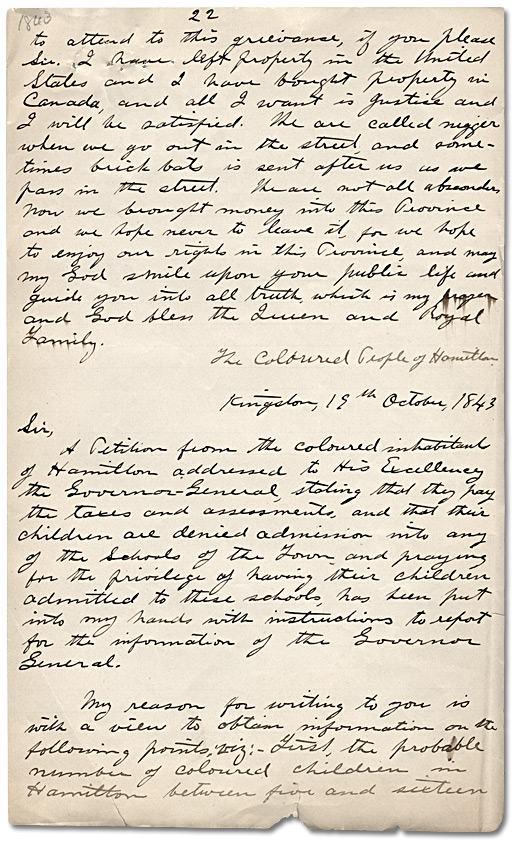 1843
22
to attend to this grievance, if you please
Sir. I have left property in the United
States and I have bought property in
Canada, and all I want is Justice and
I will be satisfied. We are called nigger
when we go out in the street, and some-
times brick bats is sent after us as we
pass in the street. We are not all absconders
Now we brought money into this Province
and we hope never to leave it, for we hope
to enjoy our rights in this Province, and may
my God smile upon your public life and
guide you into all truth, which is my prayer
and God bless the Queen and Royal
Family.
The Coloured People of Hamilton
Kingston, 19th October, 1843
Sir,
A Petition from the coloured inhabitants
of Hamilton addressed to His Excellency
the Governor-General, stating that they pay
the taxes and assessments, and that their
children are denied admission into any
of the Schools of the Town, and praying
for the privilege of having their children
admitted to these schools, has been put
into my hands with instructions to repot
for the information of the Governor
General.
My reason for writing to you is
with a view to obtain information on the
following points, viz:- First, the probable
number of coloured children in
Hamilton between five and sixteen